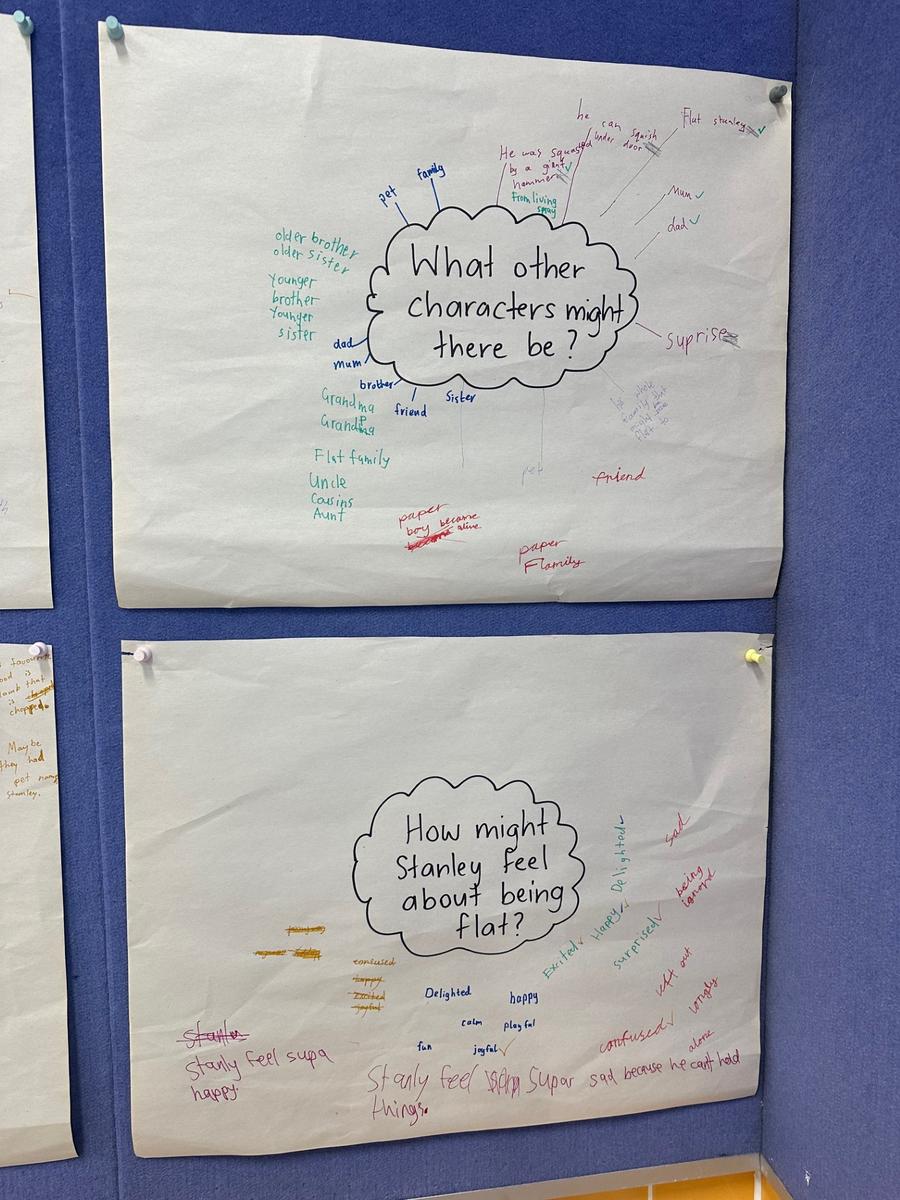 he
can squish
under door
Flat stanley
He was squashed
by a giant
hammer
From living
spray
Mum
dad
pet
family
older brother
older sister
Younger
brother
Younger
sister
What other
characters might
there be?
suprise
dad
mum
brother
friend
Sister
Grandma
Grandpa
Flat family
Uncle
Cousins
Aunt
pet
friend
paper
boy became
alive
paper
Flamily
favourite
lamb that
is
chopped
Maybe
they had
pet
Stanley.
How might
Stanley feel
about being
flat?
Delighted
Happy
Excited
surprised
sad
being
ignord
left out
longly
confused
alone
confused
happy
Excited
joyful
Delighted
happy
calm
playful
fun
joyful
Stanly feel supa
happy
Stanly feel Supar sad because he can't hold
things.